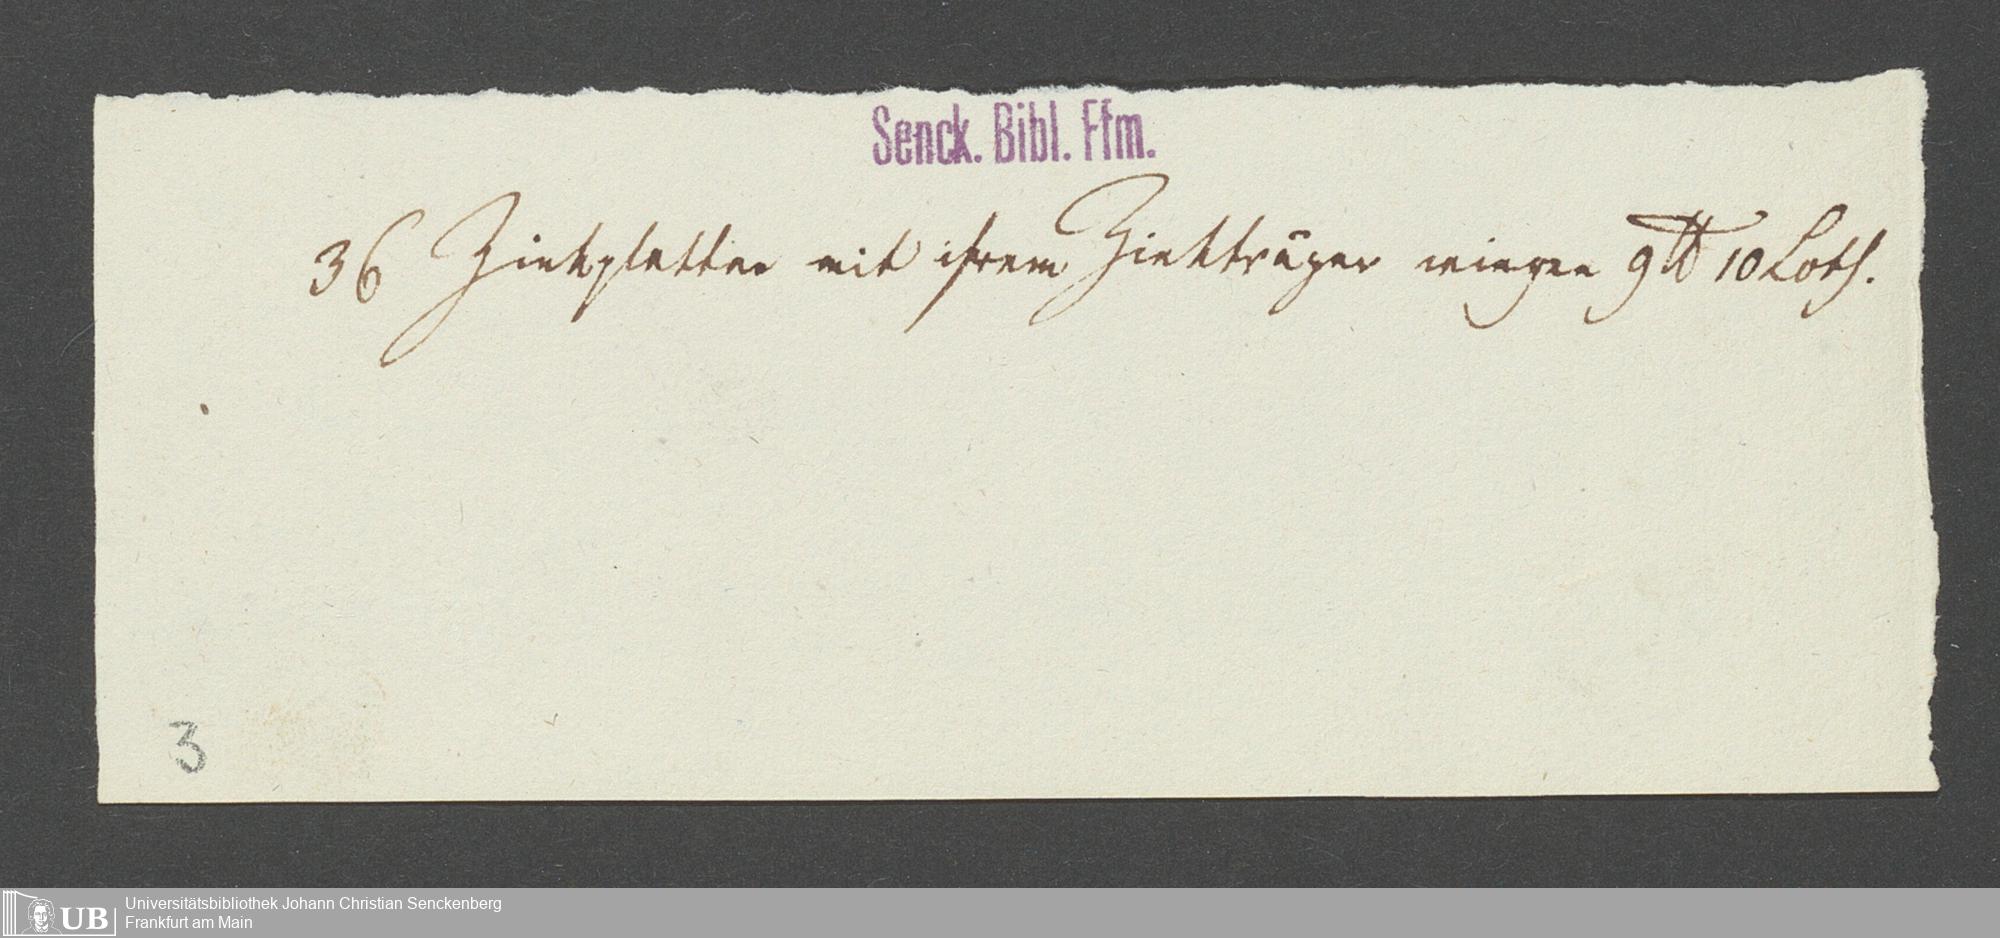 Senck. Bibl. Ffm.
36 Zinkplatten mit ihrem Zinkträger wiegen 9 ℔ 10 Loth.
3
UB
Universitätsbibliothek Johann Christian Senckenberg
Frankfurt am Main